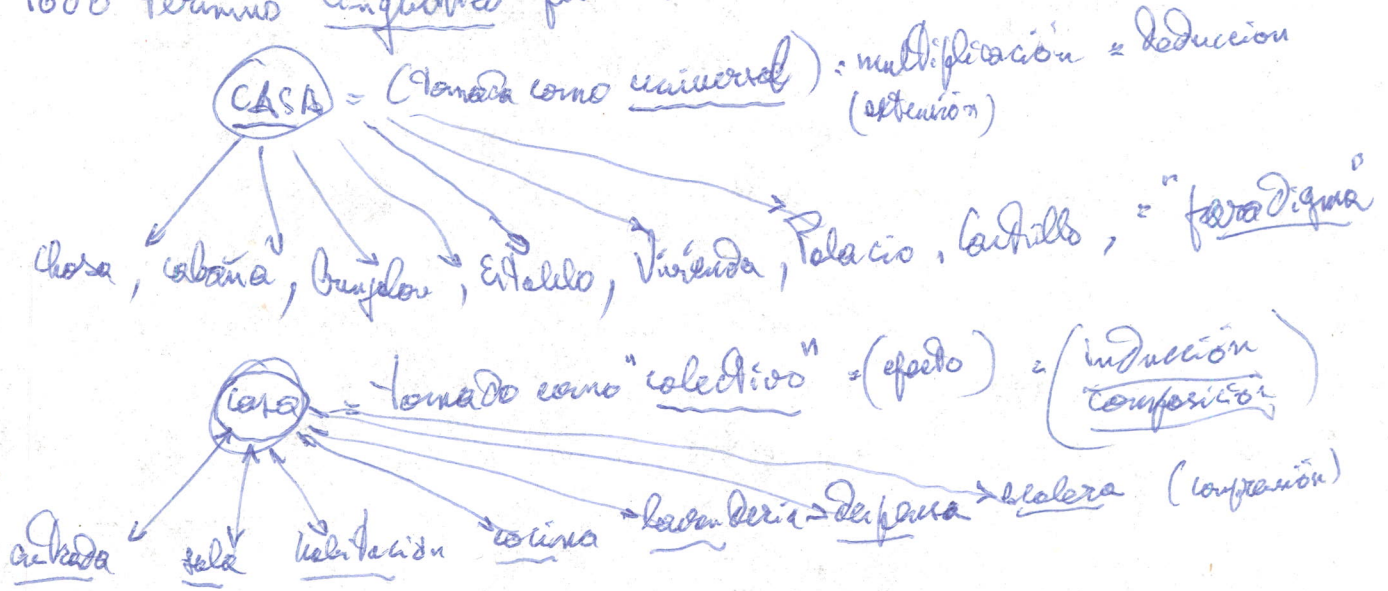 Todo término lingüístico
CASA = (tomada como universal) = multiplicación = Deducción
(extensión)
Choza, cabaña, Bungalow, Establo, Vivienda, Palacio, Castillo, = "paradigma"
casa = tomado como "colectivo" = (efecto) = (inducción
composición)
entrada sala habitación cocina lavandería despensa escalera (comprensión)